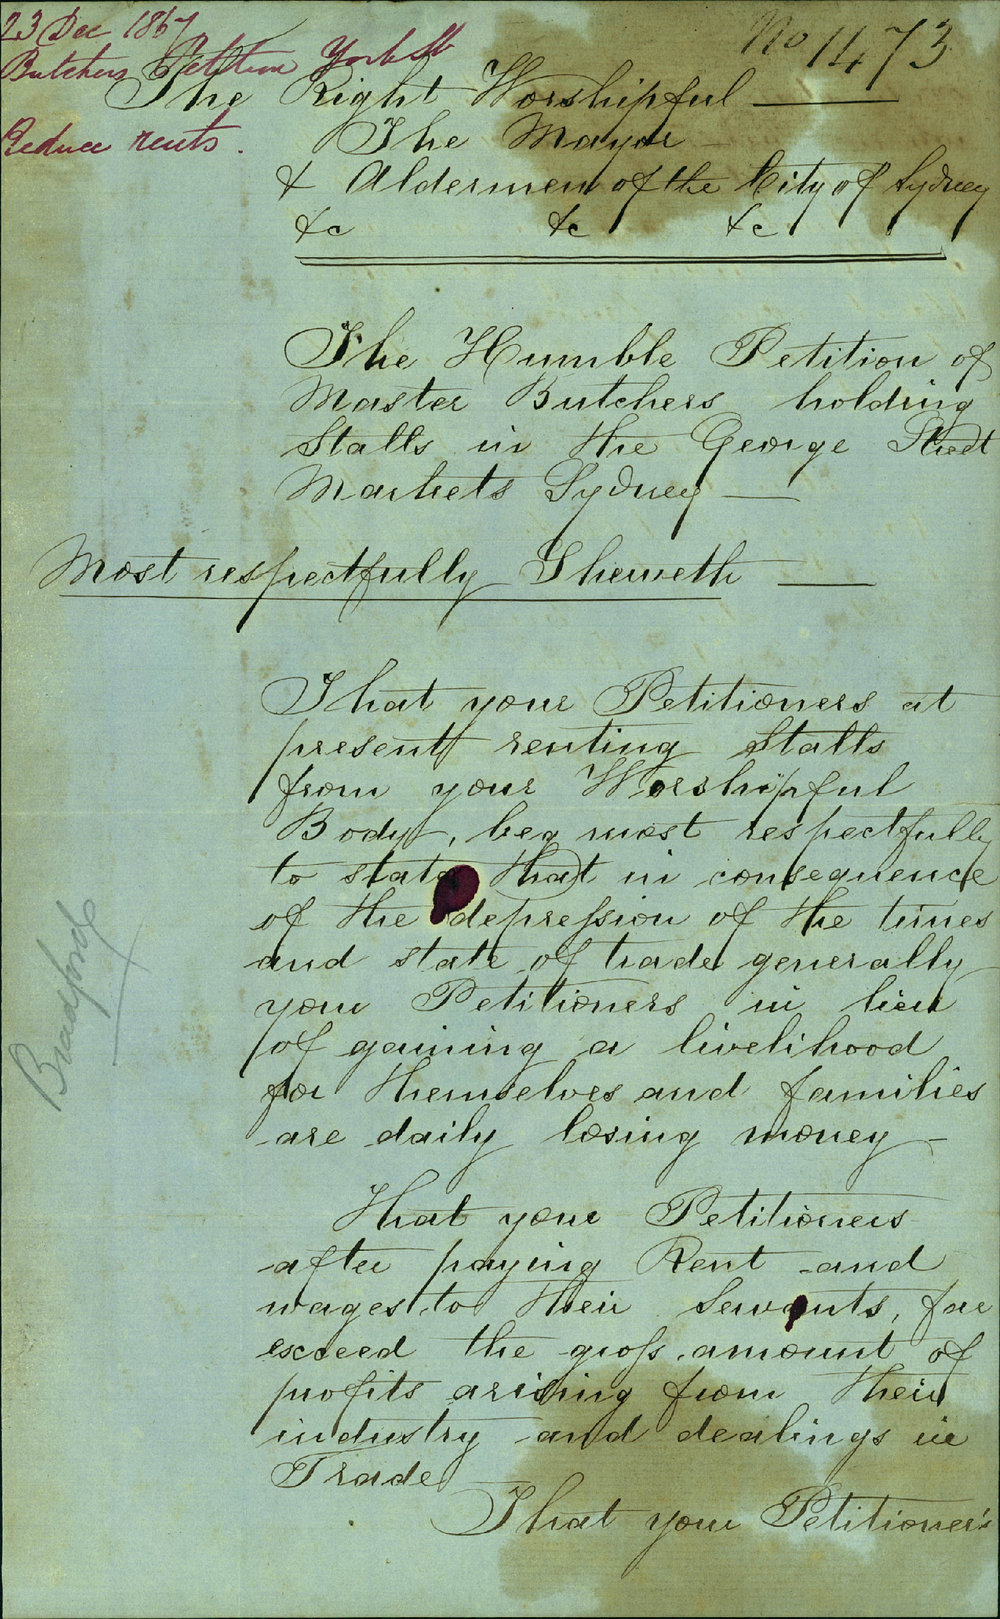 23 Dec 1867
Butchers Petition York St
Reduce rents.
No 1473
The Right Worshipful
The Mayor
& Aldermen of the City of Sydney
&c &c &c
The Humble Petition of
Master Butchers holding
Stalls in the George Street
Markets Sydney
Most respectfully Sheweth
That your Petitioners at
present renting Stalls
from your Worshipful
Body, beg most respectfully
to state that in consequence
of the depression of the times
and state of trade generally
your Petitioners in lieu
of gaining a livelihood
for themselves and families
are daily losing money
That your Petitioners
after paying Rent and
wages to their Servants, far
exceed the gross amount of
profits arising from their
industry and dealings in
Trade
That your Petitioner's
Bradford